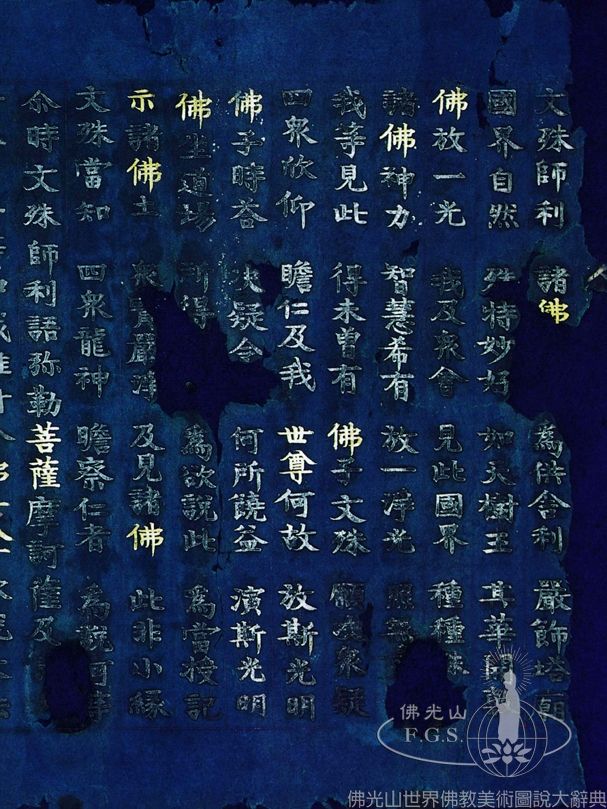 文殊師利 諸佛 為供舍利 嚴飾塔廟
國界自然 殊特妙好 如天樹王 其華開敷
佛放一光 我及衆會 見此國界 種種殊
諸佛神力 智慧希有 放一淨光 照無
我等見此 得未曾有 佛子文殊 願决衆疑
四衆欣仰 瞻仁及我 世尊何故 放斯光明
佛子時荅 決疑令 何所饒益 演斯光明
佛坐道場 所得 為欲說此 為當授記
示諸佛土 衆寶嚴淨 及見諸佛 此非小緣
文殊當知 四衆龍神 瞻察仁者 為說何等
尒時文殊師利語弥勒菩薩摩訶薩及
佛光山
F.G.S.
佛光山世界佛教美術圖說大辭典